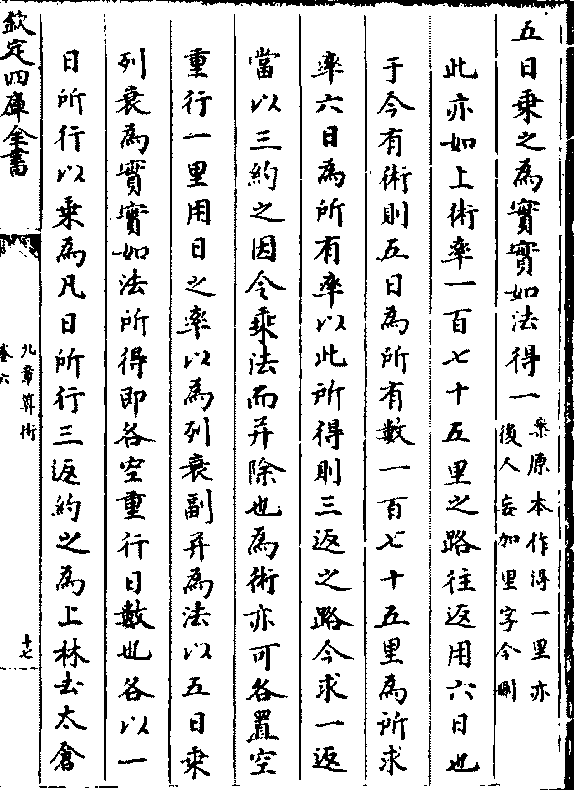 五日乗之為實實如法得一案原本作得一里亦
後人妄加里字今刪
此亦如上術率一百七十五里之路往返用六日也
于今有術則五日為所有數一百七十五里為所求
率六日為所有率以此所得則三返之路今求一返
當以三約之因令乘法而并除也為術亦可各置空
重行一里用日之率以為列衰副并為法以五日乗
列衰為實實如法所得即各空重行日數也各以一
日所行以乗為凡日所行三返約之為上林去太倉
欽定四庫全書
九章算術
卷六
十七